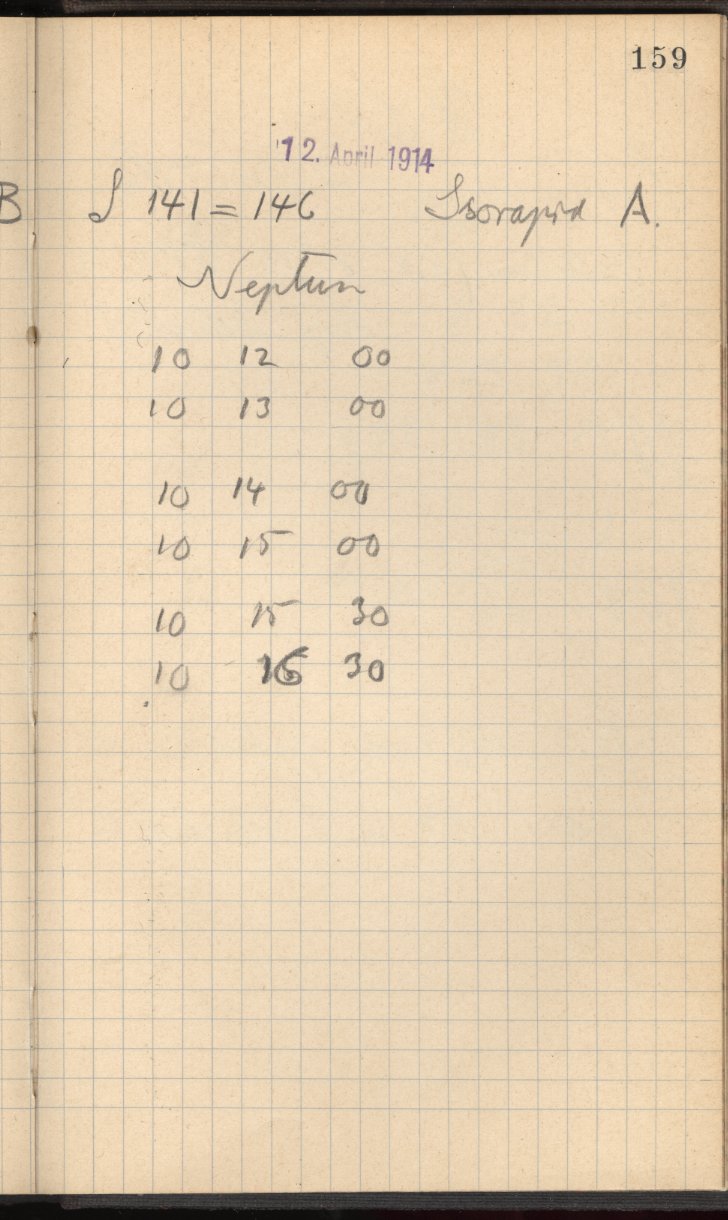 159
12. April 1914
B
S 141 = 146 Isorapid A.
Neptun
10 12 00
10 13 00
10 14 00
10 15 00
10 15 30
10 16 30